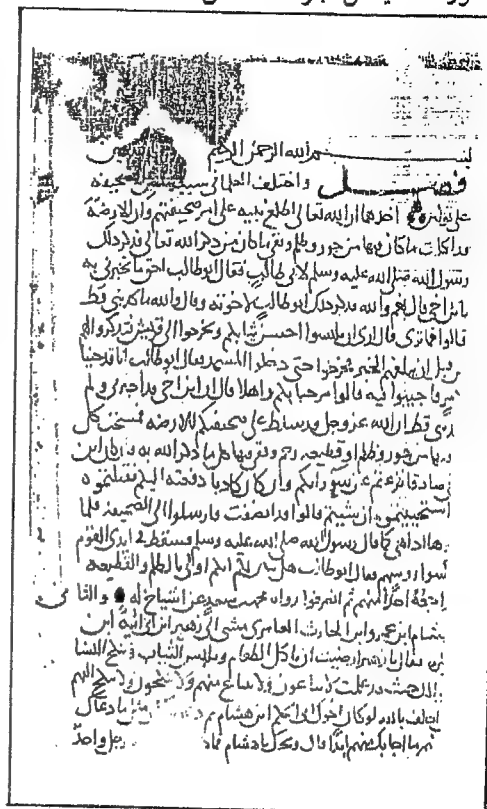 بسم الله الرحمن الرحيم
فصل واختلف العلماء في سبب نقض صحيفه
على قولين احدهما ان الله تعالى اطلع نبيه على امر صحيفتهم وان الارضة
قد اكلت ما كان فيها من جور وظلم وبقى ما كان من ذكر الله تعالى فذكر ذلك
رسول الله صلى الله عليه وسلم لابي طالب فقال ابو طالب احق ما تخبرني به
يا بن اخي قال نعم والله فذكر ذلك ابو طالب لاخوته وقال والله ما كذبني قط
قالوا فما ترى قال ارى ان تلبسوا احسن ثيابكم وتخرجوا الى قريش فتذكروا لهم
من قبل ان يبلغهم الخبر فخرجوا حتى دخلوا المسجد فقال ابو طالب انا قد جينا
في امر فاجيبوا فيه قالوا مرحبا بكم واهلا قال ان ابن اخي قد اخبرني ولم
قط ان الله عز وجل قد سلط على صحيفتكم الارضة فمسحت كل
فيها من جور وظلم او قطيعه رحم وبقى فيها كل ما ذكر الله به فان كان ابن
صادقا نزعتم عن سوء رايكم وان كان كاذبا دفعته اليكم فقتلتموه
استحييتموه ان شيتم قالوا قد انصفت فارسلوا الى الصحيفه فلما
اذا هي كما قال رسول الله صلى الله عليه وسلم فسقط في ايدي القوم
رووسهم فقال ابو طالب هل تبين لكم انكم اولى بالظلم والقطيعه
احد منهم ثم انصرفوا رواه محمد بن سعد عن اشياخ له والثاني
هشام ابن عمرو ابن الحارث العامري مشى الى زهير ابن ابي امية ابن
فقال يا زهير ارضيت ان تاكل الطعام وتلبس الثياب وتنكح النسا
حيث قد علمت لا يباعون ولا يبتاع منهم ولا ينكحون ولا ينكح اليهم
احلف بالله لو كان اخوال ابي الحكم ابن هشام ثم دعوته الى مثل ما دعاك
ما اجابك منهم ابدا قال ويحك يا هشام فماذا رجل واحد